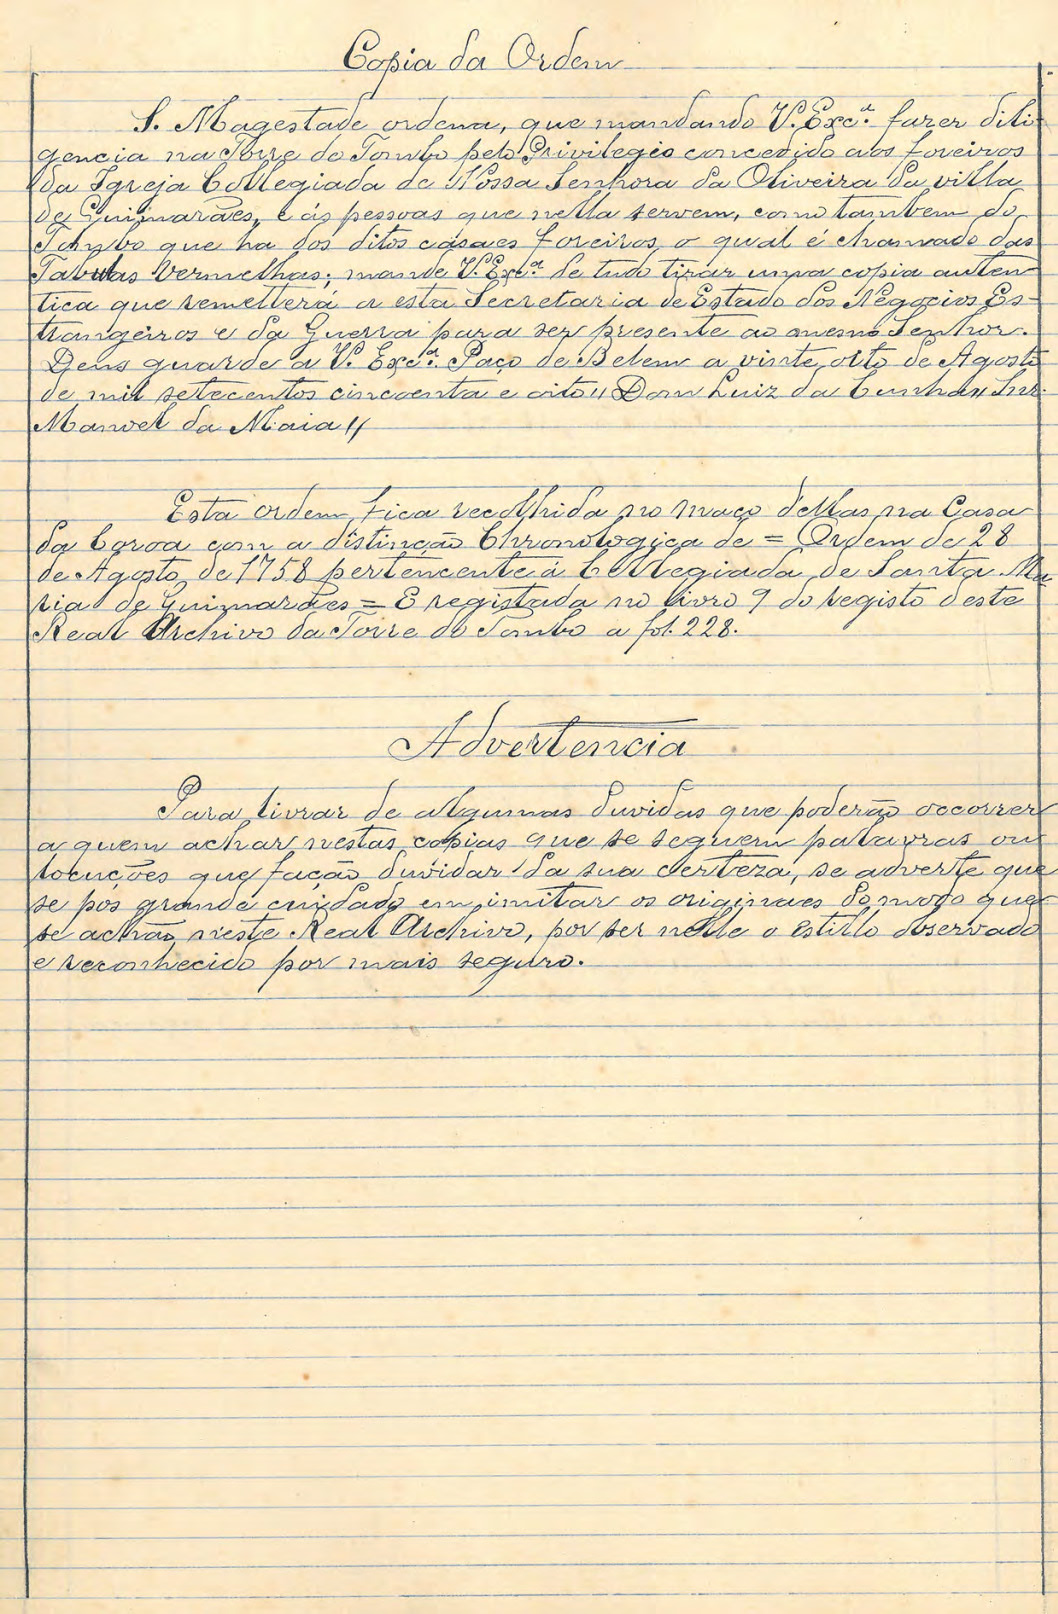 Copia da Ordem
S. Magestade ordena, que mandando V. Excª. fazer dili-
gencia na Torre do Tombo pelo Privilegio concedido aos foreiros
da Igreja Collegiada de Nossa Senhora da Oliveira da villa
de Guimarães, e ás pessoas que nella servem, como tambem do
Tombo que ha dos ditos casaes foreiros, o qual é chamado das
Tabulas Vermelhas; mande V. Excª. de tudo tirar uma copia auten-
tica que remetterá a esta Secretaria de Estado dos Negocios Es-
trangeiros e da Guerra para ser presente ao mesmo Senhor.
Deus guarde a V. Excª. Paço de Belem a vinte oito de Agosto
de mil setecentos cincoenta e oito // Dom Luiz da Cunha // Snr.
Manoel da Maia //
Esta ordem fica recolhida no maço dellas na Casa
da Coroa com a distincção Chronologica de = Ordem de 28
de Agosto de 1758 pertencente á Collegiada de Santa Ma-
ria de Guimarães = E registada no livro 9 do registo deste
Real Archivo da Torre do Tombo a fol. 228.
Advertencia
Para livrar de algumas duvidas que poderão occorrer
a quem achar nestas copias que se seguem palavras ou
locuções que fação duvidar da sua certeza, se adverte que
se pos grande cuidado em imitar os originaes do modo que
se achão neste Real Archivo, por ser nelle o estillo observado
e reconhecido por mais seguro.